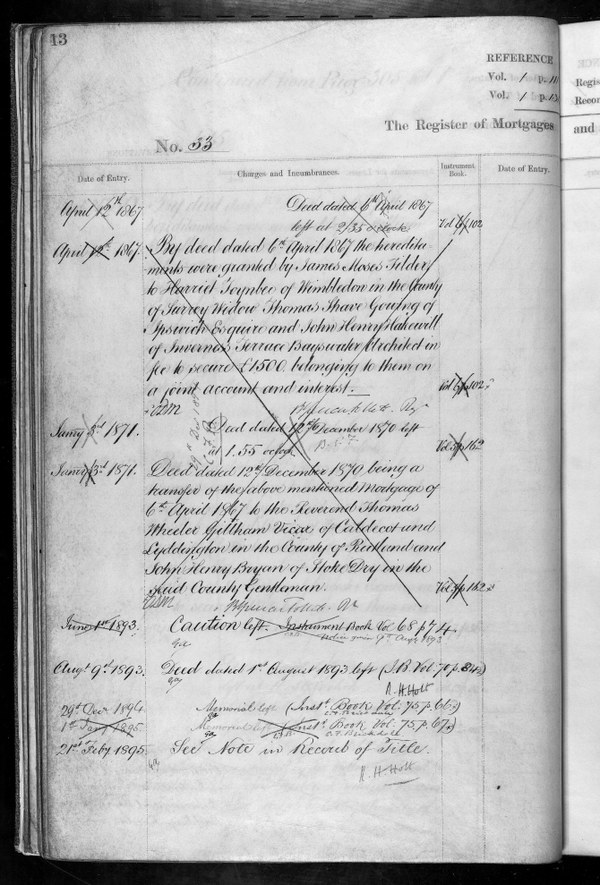 13
REFERENCE
Vol. 1 p.
Vol. 1 p.
The Register of Mortgages and
No. 33
Date of Entry.
Charges and Incumbrances.
Instrument Book.
Date of Entry.
April 12th 1867
Deed dated 6th April 1867
left at 2/35 o'clock
Vol 6/p 102
April 12th 1867.
By deed dated 6th April 1867 the heredita-
ments were granted by James Moses Tilder
to Harriet Toynbee of Wimbledon in the County
of Surrey Widow Thomas Shave Gowing of
Ipswich Esquire and John Henry Hakewill
of Inverness Terrace Bayswater Architect in
fee to secure £1500 belonging to them on
a joint account and interest.
Vol 6/p 102
Jany 3rd 1871.
Deed dated 12th December 1870 left
at 1.55 oclock
Vol 9/p 162
Jany 3rd 1871.
Deed dated 12th December 1870 being a
transfer of the above mentioned Mortgage of
6th April 1867 to the Reverend Thomas
Wheeler Gillham Vicar of Caldecot and
Lyddington in the County of Rutland and
John Henry Bryan of Stoke Dry in the
said County Gentleman.
Vol 9/p 162
June 1st 1893.
Caution left. Instrument Book Vol 68 p 74
Augt 9th 1893.
Deed dated 1st August 1893 left (I.B. Vol. 70 p. 84)
R. H. Holt
29th Decr 1894
Memorial left (Inst. Book, Vol. 75 p. 66.)
1st Jany 1895
Memorial left (Inst. Book, Vol. 75 p. 67.)
21st Feby 1895
See Note in Record of Title.
R. H. Holt